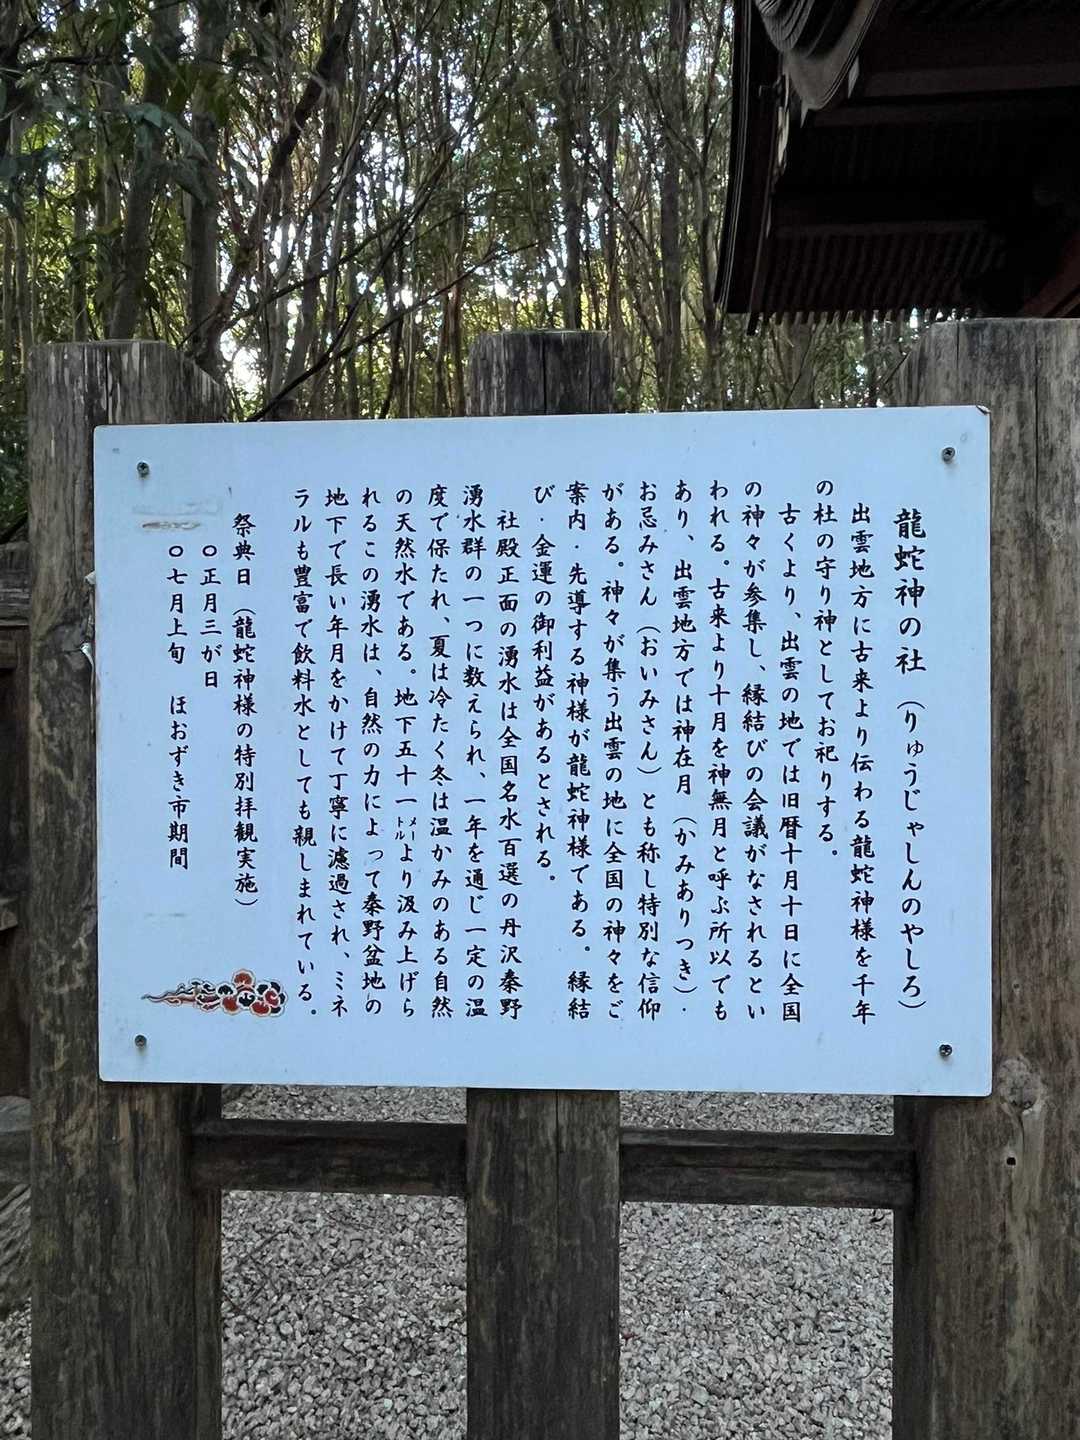 龍蛇神の社（りゅうじゃしんのやしろ）
出雲地方に古来より伝わる龍蛇神様を千年
の杜の守り神としてお祀りする。
古くより、出雲の地では旧暦十月十日に全国
の神々が参集し、縁結びの会議がなされるとい
われる。古来より十月を神無月と呼ぶ所以でも
あり、出雲地方では神在月（かみありつき）・
お忌みさん（おいみさん）とも称し特別な信仰
がある。神々が集う出雲の地に全国の神々をご
案内・先導する神様が龍蛇神様である。縁結
び・金運の御利益があるとされる。
社殿正面の湧水は全国名水百選の丹沢秦野
湧水群の一つに数えられ、一年を通じ一定の温
度で保たれ、夏は冷たく冬は温かみのある自然
の天然水である。地下五十一メートルより汲み上げら
れるこの湧水は、自然の力によって秦野盆地の
地下で長い年月をかけて丁寧に濾過され、ミネ
ラルも豊富で飲料水としても親しまれている。
祭典日（龍蛇神様の特別拝観実施）
○正月三が日
○七月上旬　ほおずき市期間